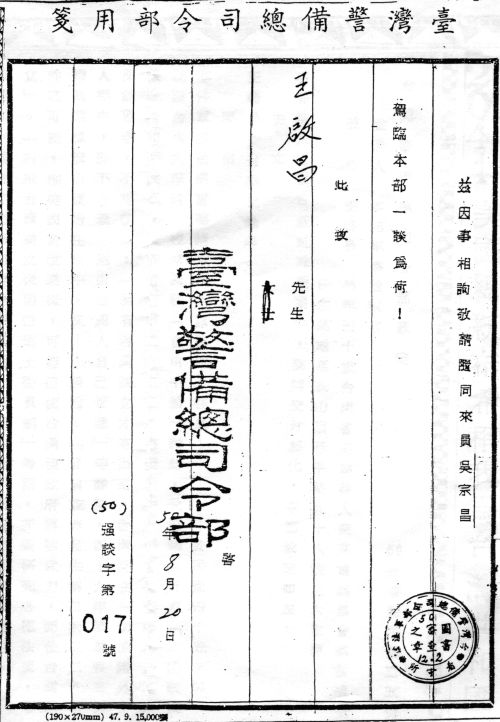 臺灣警備總司令部用箋
茲因事相詢敬請隨同來員吳宗昌
駕臨本部一談為荷！
此致
王啟昌 先生
女士
臺灣警備總司令部 啓
50年8月20日
(50)强談字第017號
50
圖書
審查
之章
12.2
(190×270mm) 47.9.15,000張